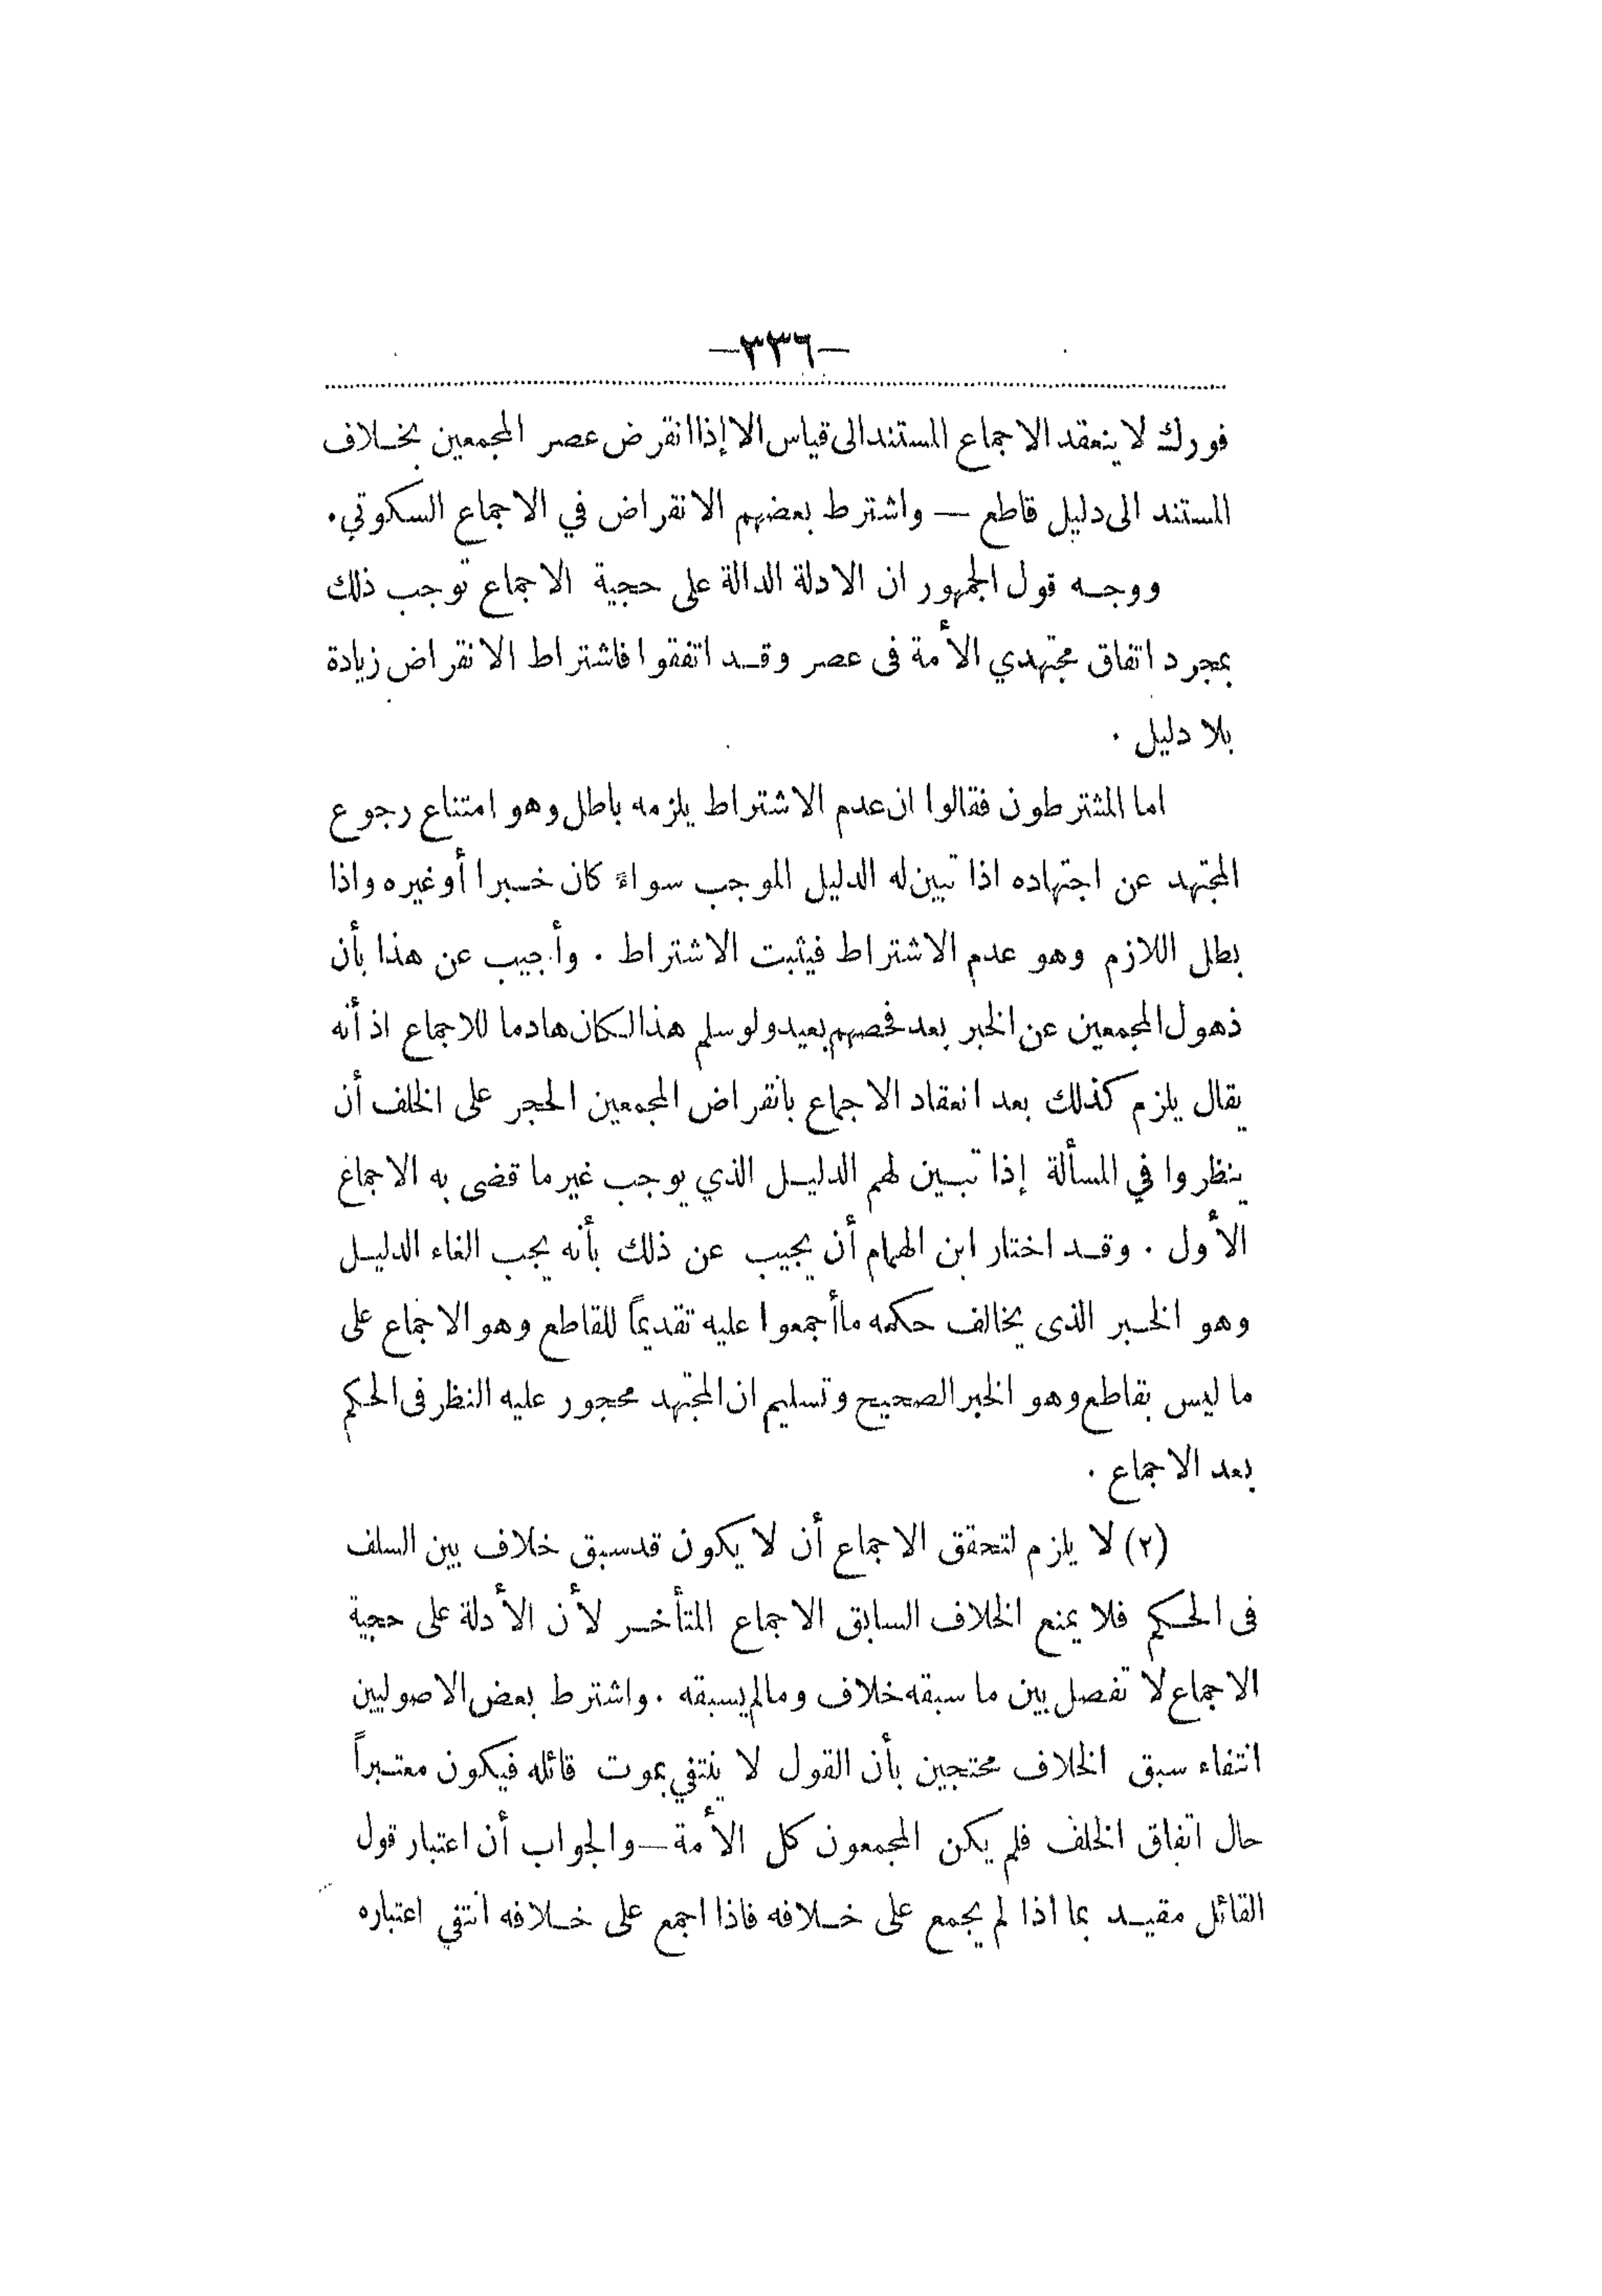 —٣٣٦—
فورك لا ينعقد الاجماع المستند الى قياس الا إذا انقرض عصر المجمعين بخلاف
المستند الى دليل قاطع — واشترط بعضهم الانقراض في الاجماع السكوتي .
ووجه قول الجمهور ان الادلة الدالة على حجية الاجماع توجب ذلك
بمجرد اتفاق مجتهدي الأمة فى عصر وقد اتفقوا فاشتراط الانقراض زيادة
بلا دليل .
اما المشترطون فقالوا ان عدم الاشتراط يلزمه باطل وهو امتناع رجوع
المجتهد عن اجتهاده اذا تبين له الدليل الموجب سواءً كان خبرا أو غيره واذا
بطل اللازم وهو عدم الاشتراط فيثبت الاشتراط . وأجيب عن هذا بأن
ذهول المجمعين عن الخبر بعد فحصهم بعيد ولو سلم هذا لكان هادما للاجماع اذ أنه
يقال يلزم كذلك بعد انعقاد الاجماع بانقراض المجمعين الحجر على الخلف أن
ينظروا في المسألة إذا تبين لهم الدليل الذي يوجب غير ما قضى به الاجماع
الأول . وقد اختار ابن الهمام أن يجيب عن ذلك بأنه يجب الغاء الدليل
وهو الخبر الذى يخالف حكمه ما أجمعوا عليه تقديماً للقاطع وهو الاجماع على
ما ليس بقاطع وهو الخبر الصحيح وتسليم ان المجتهد محجور عليه النظر فى الحكم
بعد الاجماع .
(٢) لا يلزم لتحقق الاجماع أن لا يكون قد سبق خلاف بين السلف
فى الحكم فلا يمنع الخلاف السابق الاجماع المتأخر لأن الأدلة على حجية
الاجماع لا تفصل بين ما سبقه خلاف وما لم يسبقه . واشترط بعض الاصوليين
انتفاء سبق الخلاف محتجين بأن القول لا ينتفي بموت قائله فيكون معتبراً
حال اتفاق الخلف فلم يكن المجمعون كل الأمة — والجواب أن اعتبار قول
القائل مقيد بما اذا لم يجمع على خلافه فاذا اجمع على خلافه انتفي اعتباره